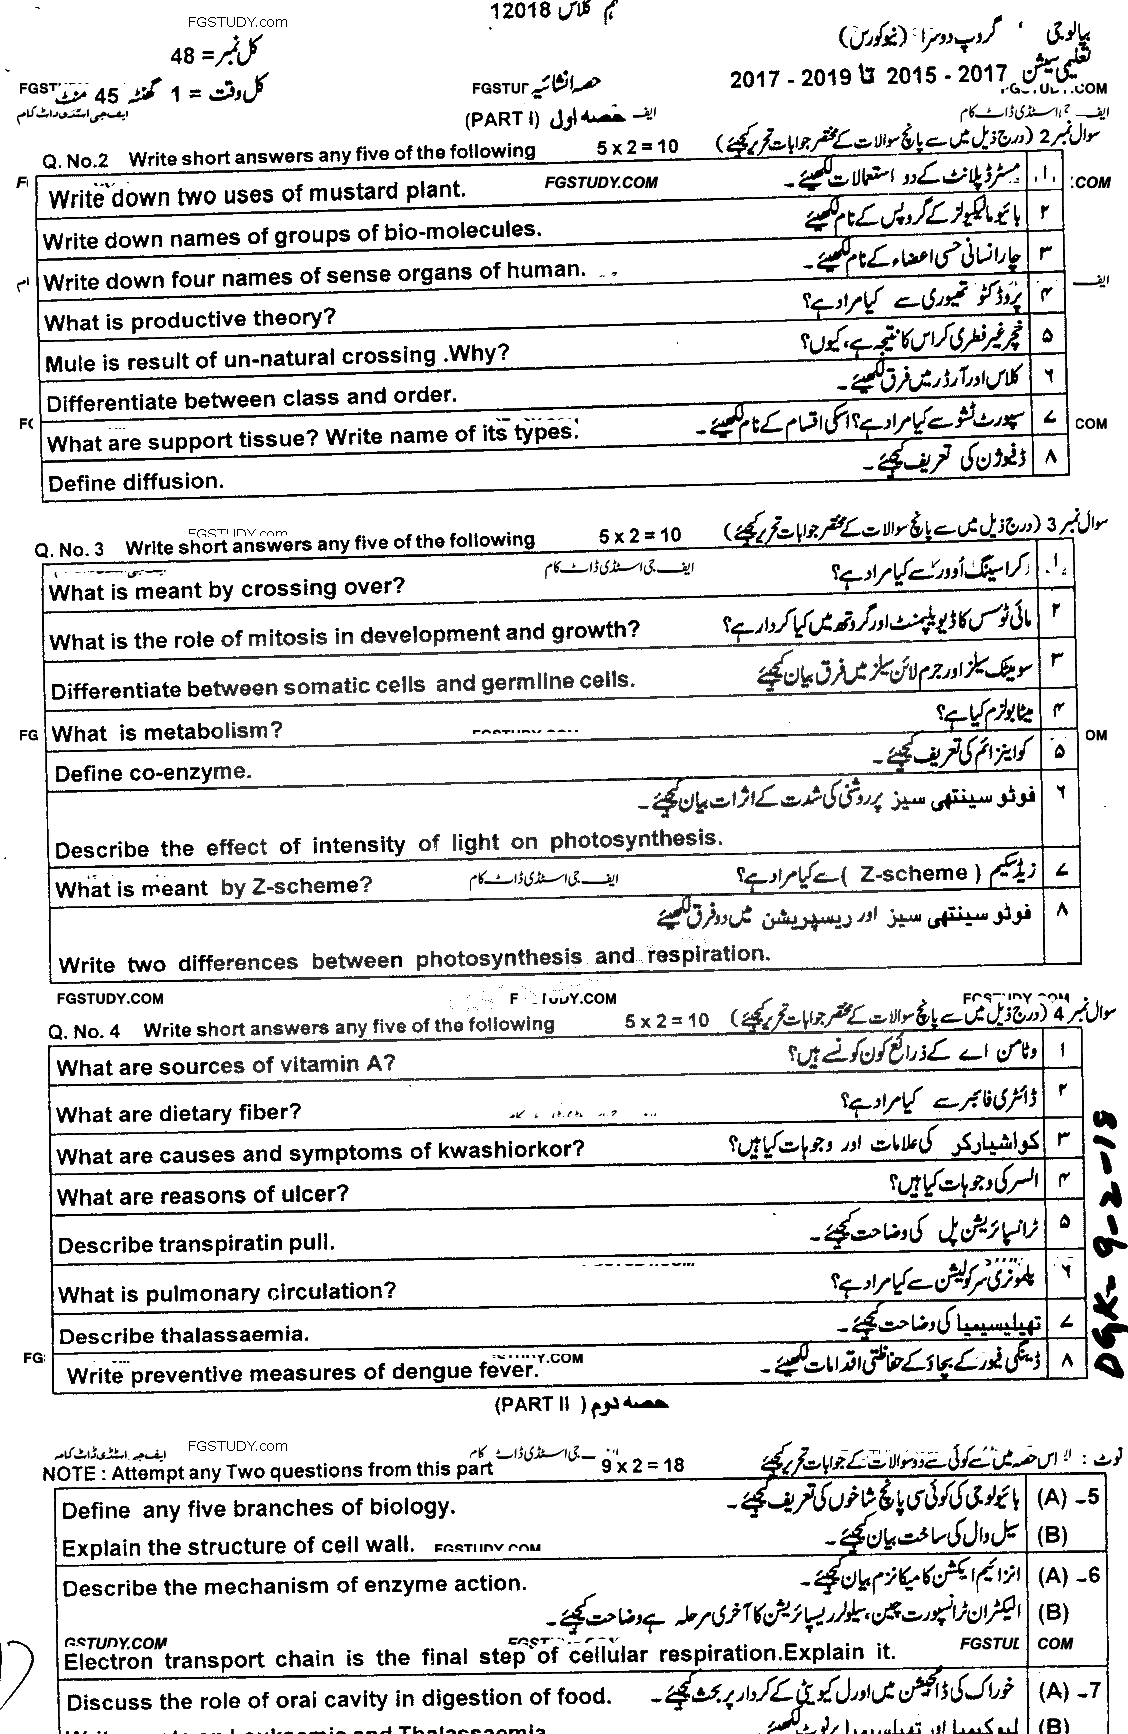 نہم کلاس 12018
FGSTUDY.com
بیالوجی گروپ دوسرا (نیو کورس)
کل نمبر = 48
تعلیمی سیشن 2017 - 2015 تا 2019 - 2017
کل وقت = 1 گھنٹہ 45 منٹ
حصہ انشائیہ
ایف جی اسٹڈی ڈاٹ کام
(PART I) حصہ اول
Q. No.2 Write short answers any five of the following 5 x 2 = 10 سوال نمبر 2 (درج ذیل میں سے پانچ سوالات کے مختصر جوابات تحریر کیجئے)
Write down two uses of mustard plant. FGSTUDY.COM مسٹرڈ پلانٹ کے دو استعمالات لکھیئے۔ ۱
Write down names of groups of bio-molecules. بائیو مالیکیولز کے گروپس کے نام لکھیئے ۲
Write down four names of sense organs of human. چار انسانی حسی اعضاء کے نام لکھیئے۔ ۳
What is productive theory? پروڈکٹو تھیوری سے کیا مراد ہے؟ ۴
Mule is result of un-natural crossing .Why? خچر غیر فطری کراس کا نتیجہ ہے، کیوں؟ ۵
Differentiate between class and order. کلاس اور آرڈر میں فرق لکھیئے۔ ۶
What are support tissue? Write name of its types. سپورٹ ٹشو سے کیا مراد ہے؟ اسکی اقسام کے نام لکھیئے۔ ۷
Define diffusion. ڈفیوژن کی تعریف کیجئے۔ ۸
FGSTUDY.com
Q. No. 3 Write short answers any five of the following 5 x 2 = 10 سوال نمبر 3 (درج ذیل میں سے پانچ سوالات کے مختصر جوابات تحریر کیجئے)
ایف جی اسٹڈی ڈاٹ کام
What is meant by crossing over? کراسنگ اوور سے کیا مراد ہے؟ ۱
What is the role of mitosis in development and growth? مائی ٹوسس کا ڈیویلپمنٹ اور گروتھ میں کیا کردار ہے؟ ۲
Differentiate between somatic cells and germline cells. سومیٹک سیلز اور جرم لائن سیلز میں فرق بیان کیجئے ۳
What is metabolism? میٹابولزم کیا ہے؟ ۴
Define co-enzyme. کو اینزائم کی تعریف کیجئے۔ ۵
فوٹو سینتھی سیز پر روشنی کی شدت کے اثرات بیان کیجئے۔ ۶
Describe the effect of intensity of light on photosynthesis.
What is meant by Z-scheme? ایف جی اسٹڈی ڈاٹ کام زیڈ سکیم ( Z-scheme ) سے کیا مراد ہے؟ ۷
فوٹو سینتھی سیز اور ریسپریشن میں دو فرق لکھیئے ۸
Write two differences between photosynthesis and respiration.
FGSTUDY.COM
Q. No. 4 Write short answers any five of the following 5 x 2 = 10 سوال نمبر 4 (درج ذیل میں سے پانچ سوالات کے مختصر جوابات تحریر کیجئے)
What are sources of vitamin A? وٹامن اے کے ذرائع کون کونسے ہیں؟ ۱
What are dietary fiber? ڈائٹری فائبر سے کیا مراد ہے؟ ۲
What are causes and symptoms of kwashiorkor? کواشیارکر کی علامات اور وجوہات کیا ہیں؟ ۳
What are reasons of ulcer? السر کی وجوہات کیا ہیں؟ ۴
Describe transpiratin pull. ٹرانسپائریشن پل کی وضاحت کیجئے۔ ۵
What is pulmonary circulation? پلمونری سرکولیشن سے کیا مراد ہے؟ ۶
Describe thalassaemia. تھیلیسیمیا کی وضاحت کیجئے۔ ۷
Write preventive measures of dengue fever. ڈینگی فیور کے بچاؤ کے حفاظتی اقدامات لکھیئے۔ ۸
DGK-9-2-18
(PART II) حصہ دوم
FGSTUDY.com
ایف جی اسٹڈی ڈاٹ کام
نوٹ : اس حصہ میں سے کوئی سے دو سوالات کے جوابات تحریر کیجئے
NOTE : Attempt any Two questions from this part 9 x 2 = 18
Define any five branches of biology. بائیولوجی کی کوئی سی پانچ شاخوں کی تعریف کیجئے۔ (A) -5
Explain the structure of cell wall. FGSTUDY.COM سیل وال کی ساخت بیان کیجئے۔ (B)
Describe the mechanism of enzyme action. انزائیم ایکشن کا میکانزم بیان کیجئے۔ (A) -6
الیکٹران ٹرانسپورٹ چین، سیلولر ریسپائریشن کا آخری مرحلہ ہے وضاحت کیجئے۔ (B)
Electron transport chain is the final step of cellular respiration.Explain it.
Discuss the role of orai cavity in digestion of food. خوراک کی ڈائجیشن میں اورل کیویٹی کے کردار پر بحث کیجئے۔ (A) -7
(B)